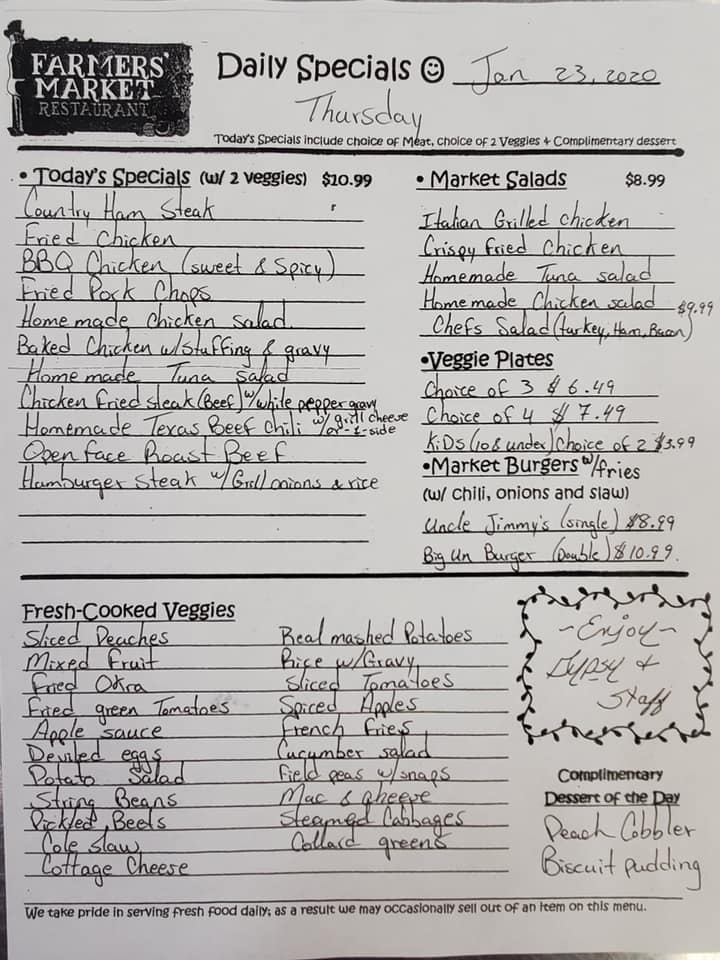 FARMERS'
MARKET
RESTAURANT
Daily Specials ☺ Jan 23, 2020
Thursday
Today's Specials include choice of Meat, choice of 2 Veggies & Complimentary dessert
• Today's Specials (w/ 2 veggies) $10.99
Country Ham Steak
Fried Chicken
BBQ Chicken (sweet & Spicy)
Fried Pork Chops
Home made Chicken Salad
Baked Chicken w/stuffing & gravy
Home made Tuna Salad
Chicken Fried Steak (Beef) w/white pepper gravy
Homemade Texas Beef Chili w/ grill cheese
or-1-side
Open face Roast Beef
Hamburger Steak w/Grill onions & rice
• Market Salads $8.99
Italian Grilled chicken
Crispy Fried Chicken
Homemade Tuna salad
Home made Chicken salad
$9.99
Chefs Salad (turkey, Ham, Bacon)
•Veggie Plates
Choice of 3 $6.49
Choice of 4 $7.49
KiDs (10 & under) Choice of 2 $3.99
•Market Burgers w/fries
(w/ chili, onions and slaw)
Uncle Jimmy's (single) $8.99
Big Un Burger (Double) $10.99.
Fresh-Cooked Veggies
Sliced Peaches
Mixed Fruit
Fried Okra
Fried green Tomatoes
Apple sauce
Deviled eggs
Potato Salad
String Beans
Pickled Beets
Cole slaw
Cottage Cheese
Real mashed Potatoes
Rice w/Gravy
Sliced Tomatoes
Spiced Apples
French fries
Cucumber salad
Field peas w/snaps
Mac & cheese
Steamed Cabbages
Collard greens
~Enjoy~
Gypsy &
Staff
Complimentary
Dessert of the Day
Peach Cobbler
Biscuit pudding
We take pride in serving fresh food daily; as a result we may occasionally sell out of an item on this menu.